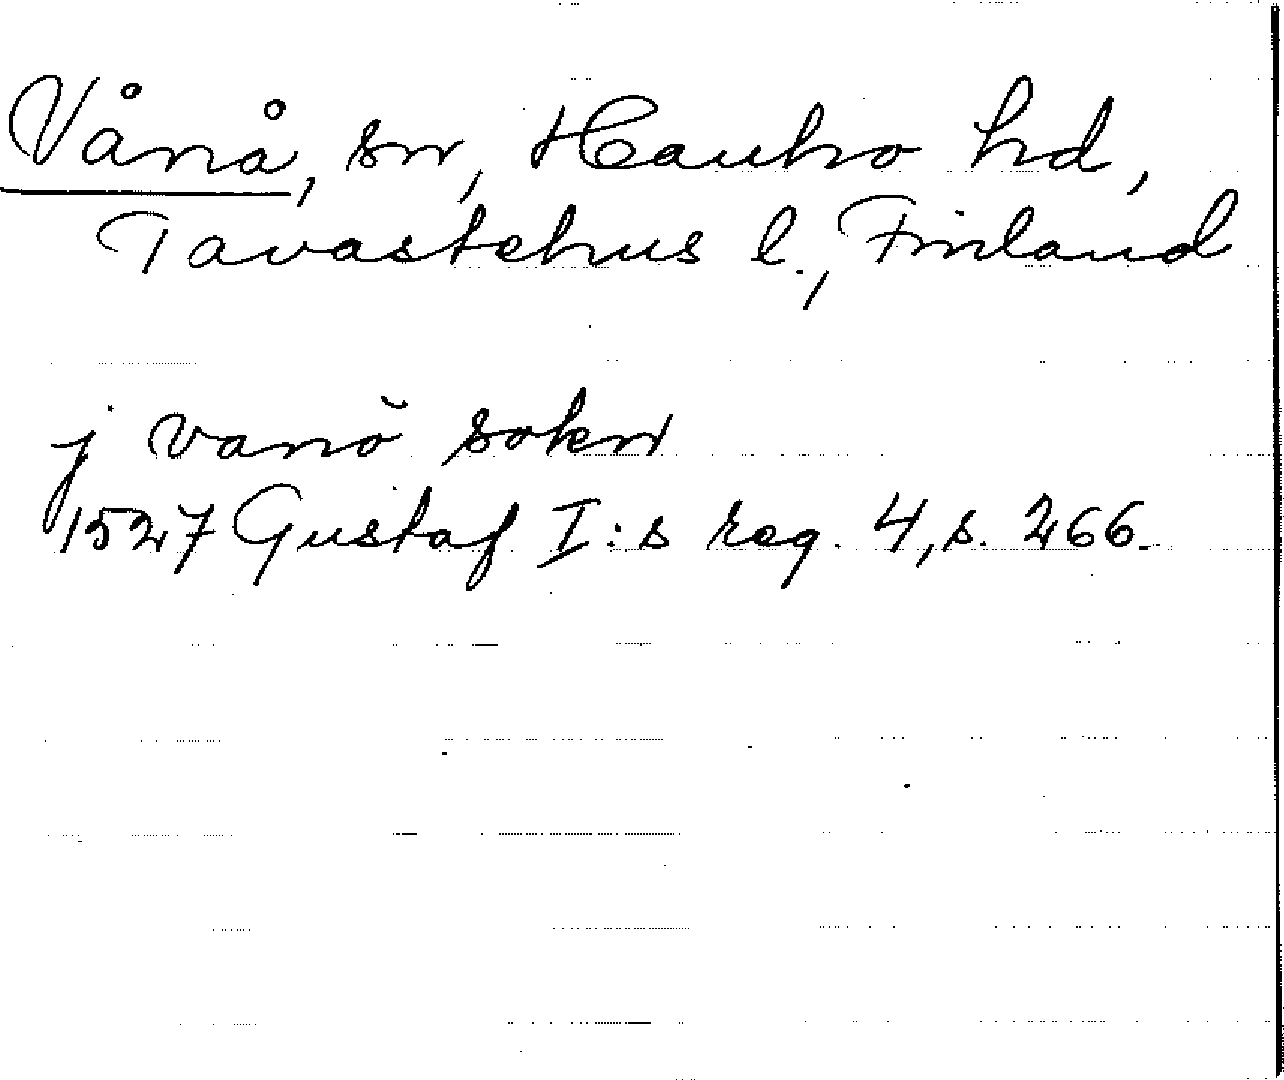 Vånå, sn, Hauho hd,
Tavastehus l., Finland
j vanŏ sokn
1527 Gustaf I:s reg. 4, s. 266.